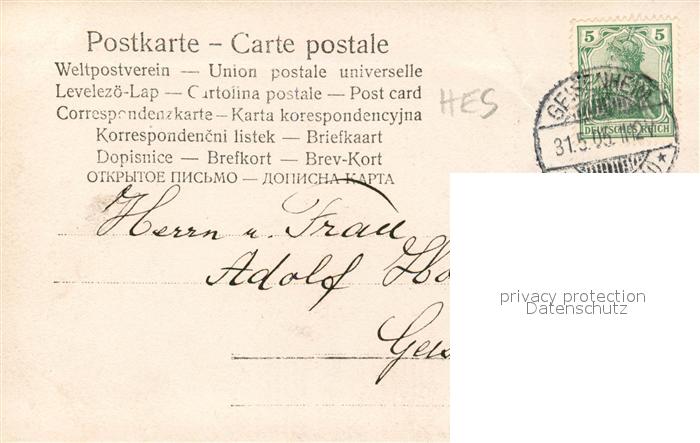 Postkarte – Carte postale
Weltpostverein — Union postale universelle
Levelezö-Lap — Cartolina postale — Post card
Correspondenzkarte — Karta korespondencyjna
Korrespondenční listek — Briefkaart
Dopisnice — Brefkort — Brev-Kort
ОТКРЫТОЕ ПИСЬМО — ДОПИСНА КАРТА
HES
5 5
DEUTSCHES REICH
GEISENHEIM
31.5.05.
Herrn u. Frau
Adolf Ho
Geis
privacy protection
Datenschutz